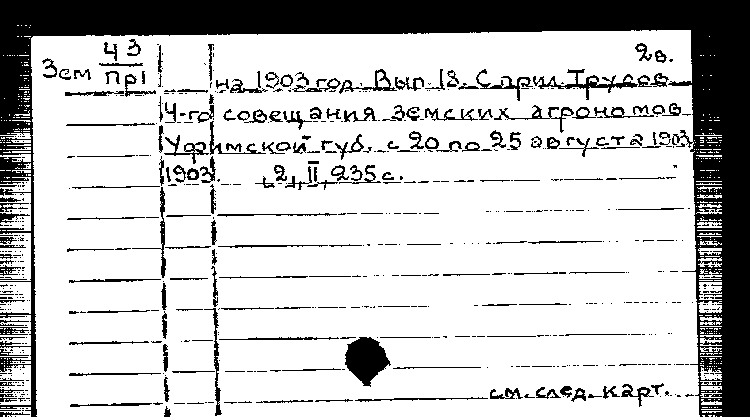 2в.
Зем 43
При
на 1903 год. Вып. 18. С прил. Трудов
4-го совещания земских агрономов
Уфимской губ. с 20 по 25 августа 1903
1903. ,2,, II, 235 с.
см. след. карт.